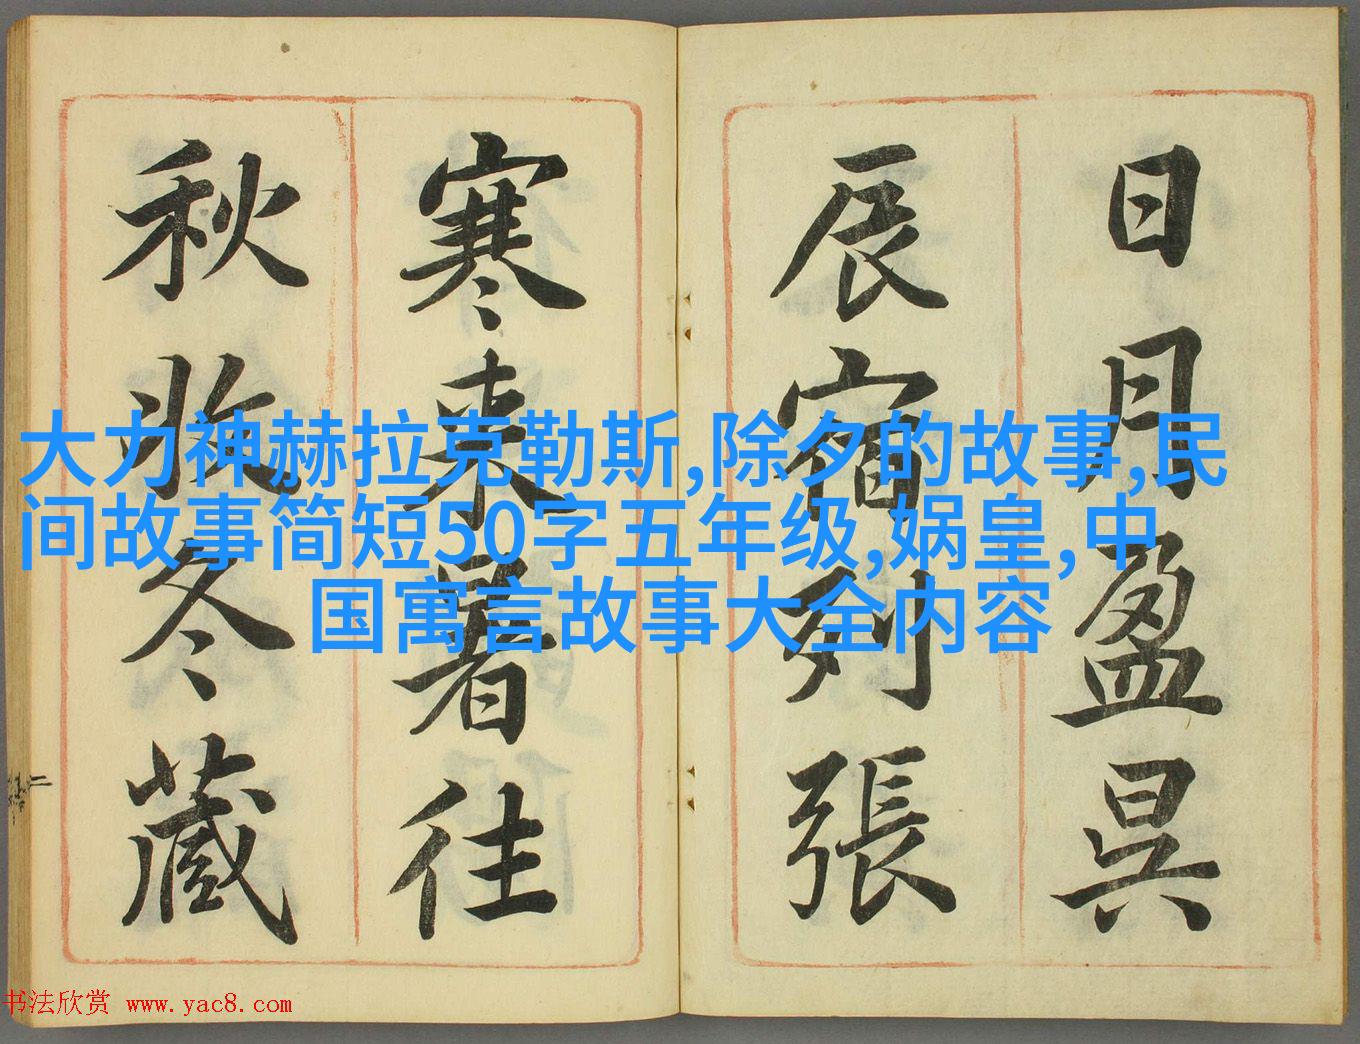 日月盈昃
辰宿列張
寒来暑往
秋收冬藏
大力神赫拉克勒斯,除夕的故事,民
间故事简短50字五年级,娲皇,中
国寓言故事大全内容
二
书法欣赏 www.yac8.com